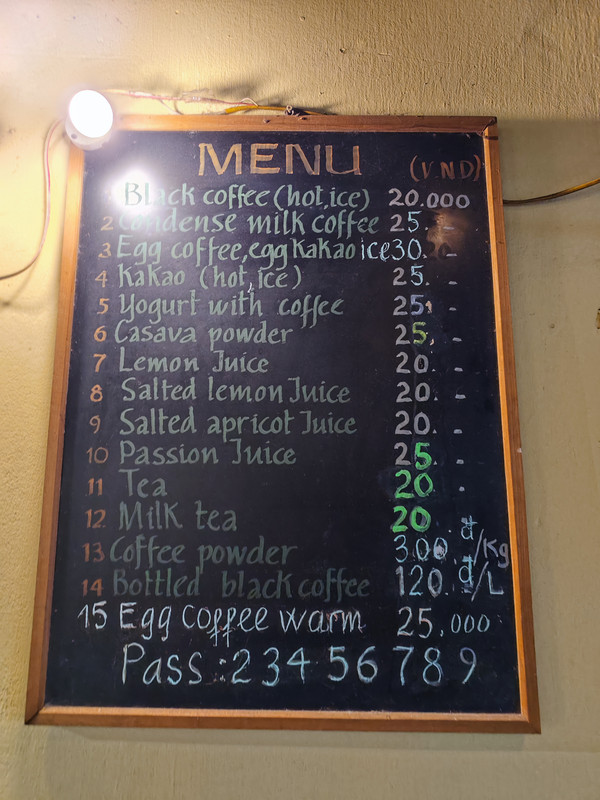 MENU (V.N.D)
Black coffee (hot, ice) 20.000
2 Condense milk coffee 25. -
3 Egg coffee, egg Kakao ice 30. -
4 Kakao (hot, ice) 25. -
5 Yogurt with coffee 25. -
6 Casava powder 25. -
7 Lemon Juice 20. -
8 Salted lemon Juice 20. -
9 Salted apricot Juice 20. -
10 Passion Juice 25. -
11 Tea 20. -
12 Milk tea 20.
13 Coffee powder 300. đ/Kg
14 Bottled black coffee 120. đ/L
15 Egg coffee warm 25,000
Pass : 2 3 4 5 6 7 8 9